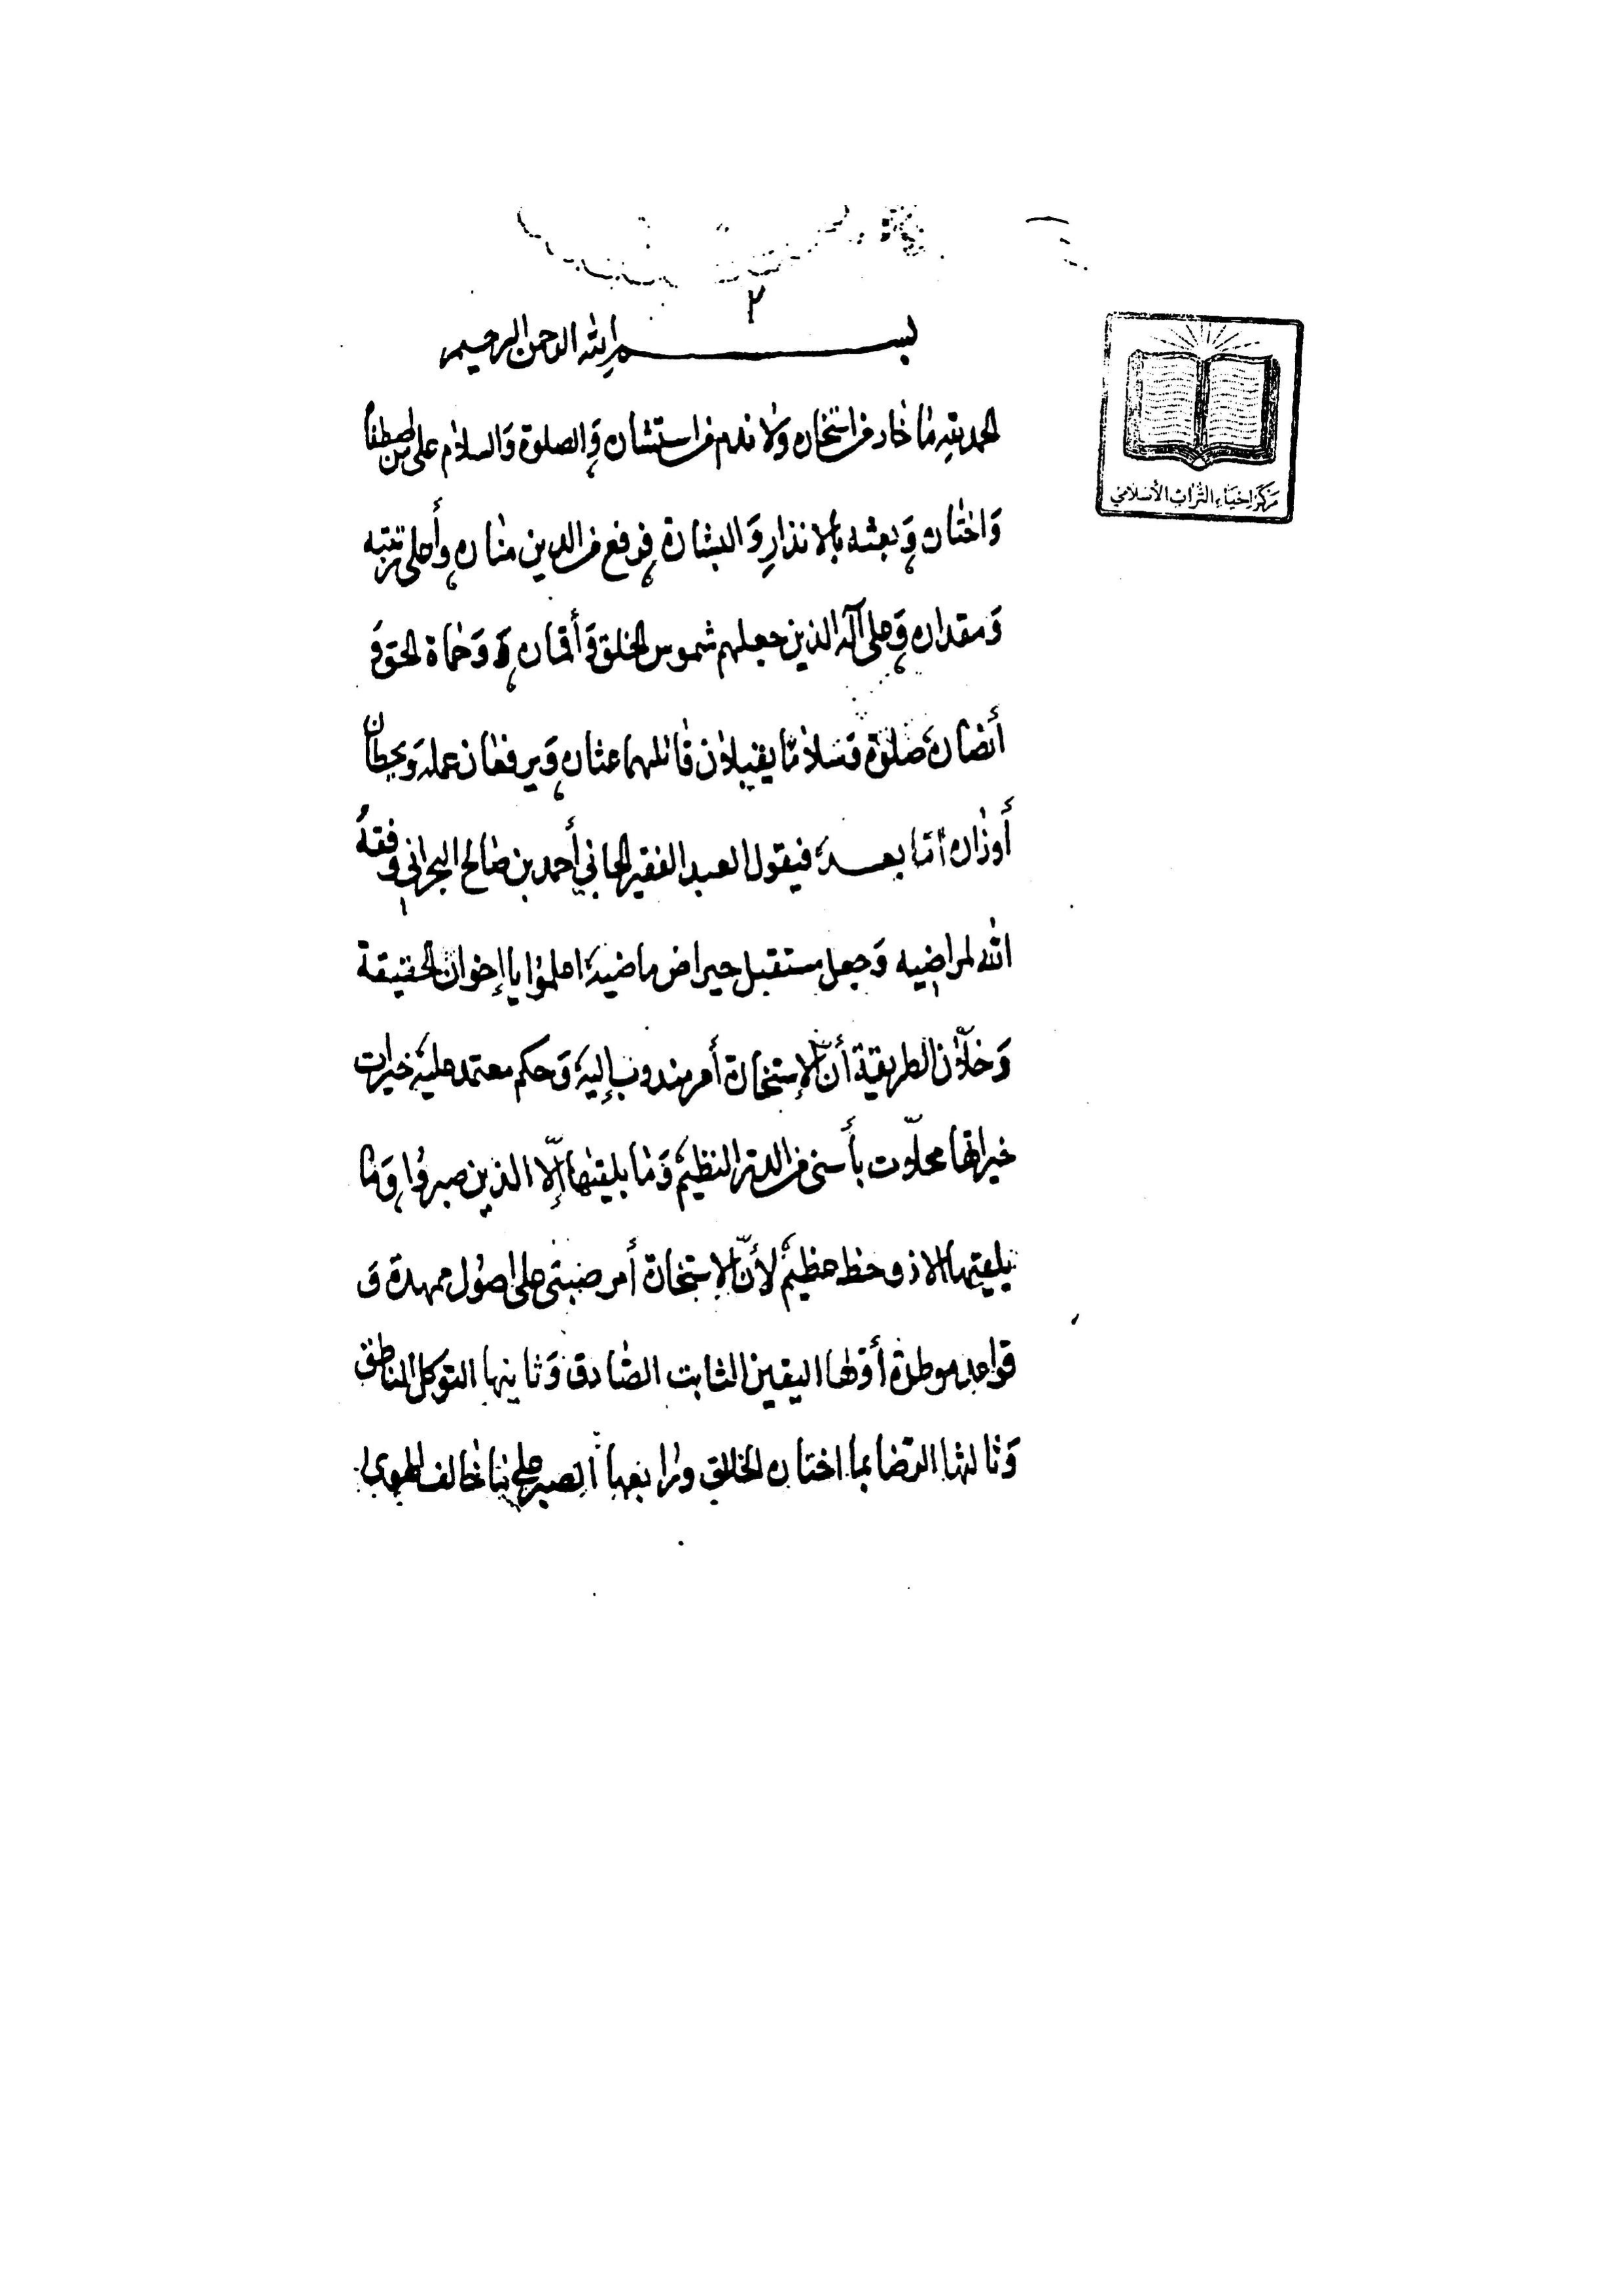 ٢
بسم الله الرحمن الرحيم
الحمد لله ما خار من استخاره ولا ندم من استشاره والصلوة والسلام على من اصطفاه
واختاره وبعثه بالانذار والبشارة فرفع من الدين مناره وأعلى رتبته
ومقداره وعلى آله الذين جعلهم شموس الخلق وأقماره وحماة الحق و
أنصاره صلوة وسلاما يقيلان قائلهما عثاره ويرفعان عمله ويحطان
أوزاره أما بعد فيقول العبد الفقير الجاني أحمد بن صالح البحراني وفقه
الله لمراضيه وجعل مستقبل خيرا من ماضيه اعلموا يا إخوان الحقيقة
وخلّان الطريقة أنّ الإستخارة أمر مندوب إليه وحكم معتمد عليه خيرات
خيراتها محلّوت بأسنى من الدر النظيم وما يلقيها إلّا الذين صبروا وما
يلقيها الا ذو حظ عظيم لأنّ الإستخارة أمر مبتنى على اصول ممهدة و
قواعد موطدة أولها اليقين الثابت الصادق وثانيها التوكل المناطق
وثالثها الرضا بما اختاره الخالق ورابعها الصبر على ما خالف الهوى
مركز إحياء التراث الإسلامي